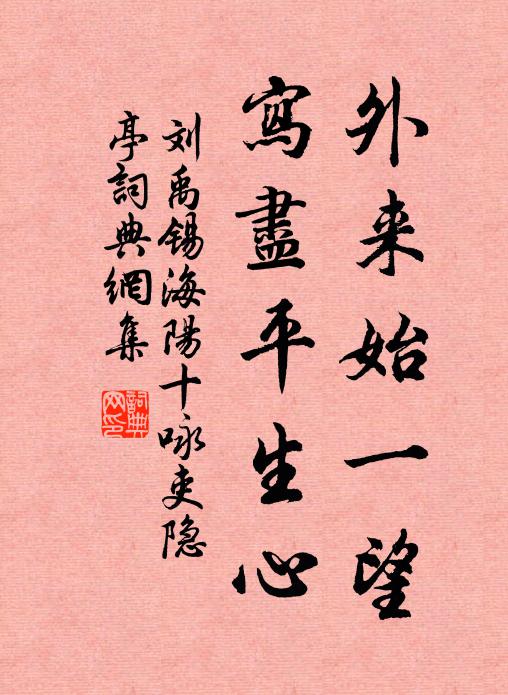 外来始一望
寫盡平生心
刘禹锡海陽十咏吏隐
亭詞典網集
詞典
网印